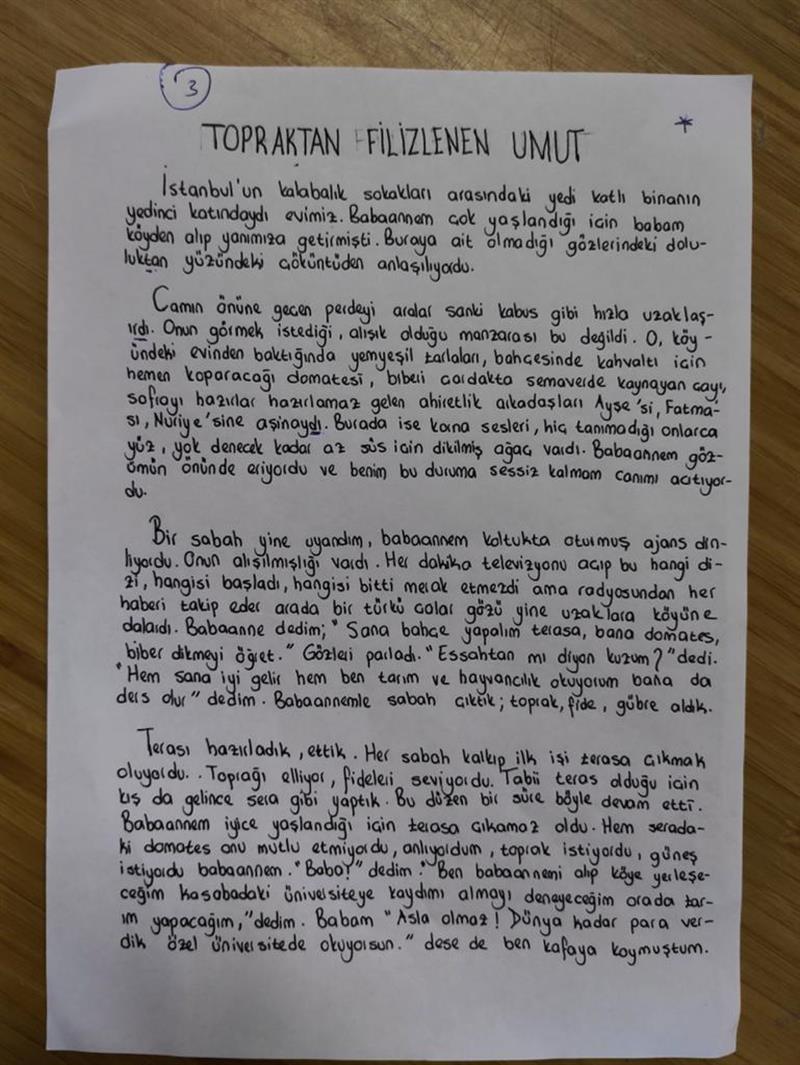 3
*
TOPRAKTAN FİLİZLENEN UMUT
İstanbul'un kalabalık sokakları arasındaki yedi katlı binanın
yedinci katındaydı evimiz. Babaannem çok yaşlandığı için babam
köyden alıp yanımıza getirmişti. Buraya ait olmadığı gözlerindeki dolu-
luktan yüzündeki çöküntüden anlaşılıyordu.
Camın önüne geçen perdeyi aralar sanki kabus gibi hızla uzaklaş-
ırdı. Onun görmek istediği, alışık olduğu manzarası bu değildi. O, köy-
ündeki evinden baktığında yemyeşil tarlaları, bahçesinde kahvaltı için
hemen koparacağı domatesi, biberi çardakta semaverde kaynayan çayı,
sofrayı hazırlar hazırlamaz gelen ahiretlik arkadaşları Ayşe'si, Fatma-
sı, Nuriye'sine aşinaydı. Burada ise korna sesleri, hiç tanımadığı onlarca
yüz, yok denecek kadar az süs için dikilmiş ağaç vardı. Babaannem göz-
ümün önünde eriyordu ve benim bu duruma sessiz kalmam canımı acıtıyor-
du.
Bir sabah yine uyandım, babaannem koltukta oturmuş ajans din-
liyordu. Onun alışılmışlığı vardı. Her dakika televizyonu açıp bu hangi di-
zi, hangisi başladı, hangisi bitti merak etmezdi ama radyosundan her
haberi takip eder arada bir türkü çalar gözü yine uzaklara köyüne
dalardı. Babaanne dedim; "Sana bahçe yapalım terasa, bana domates,
biber dikmeyi öğret." Gözleri parladı. "Essahtan mı diyon kuzum?" dedi.
"Hem sana iyi gelir hem ben tarım ve hayvancılık okuyorum bana da
ders olur" dedim. Babaannemle sabah çıktık; toprak, fide, gübre aldık.
Terası hazırladık, ettik. Her sabah kalkıp ilk işi terasa çıkmak
oluyordu.. Toprağı elliyor, fideleri seviyordu. Tabii teras olduğu için
kış da gelince sera gibi yaptık. Bu düzen bir süre böyle devam etti.
Babaannem iyice yaşlandığı için terasa çıkamaz oldu. Hem serada-
ki domates onu mutlu etmiyordu, anlıyordum, toprak istiyordu, güneş
istiyordu babaannem. "Baba!" dedim. "Ben babaannemi alıp köye yerleşe-
ceğim kasabadaki üniversiteye kaydımı almayı deneyeceğim orada tar-
ım yapacağım," dedim. Babam "Asla olmaz! Dünya kadar para ver-
dik özel üniversitede okuyorsun." dese de ben kafaya koymuştum.